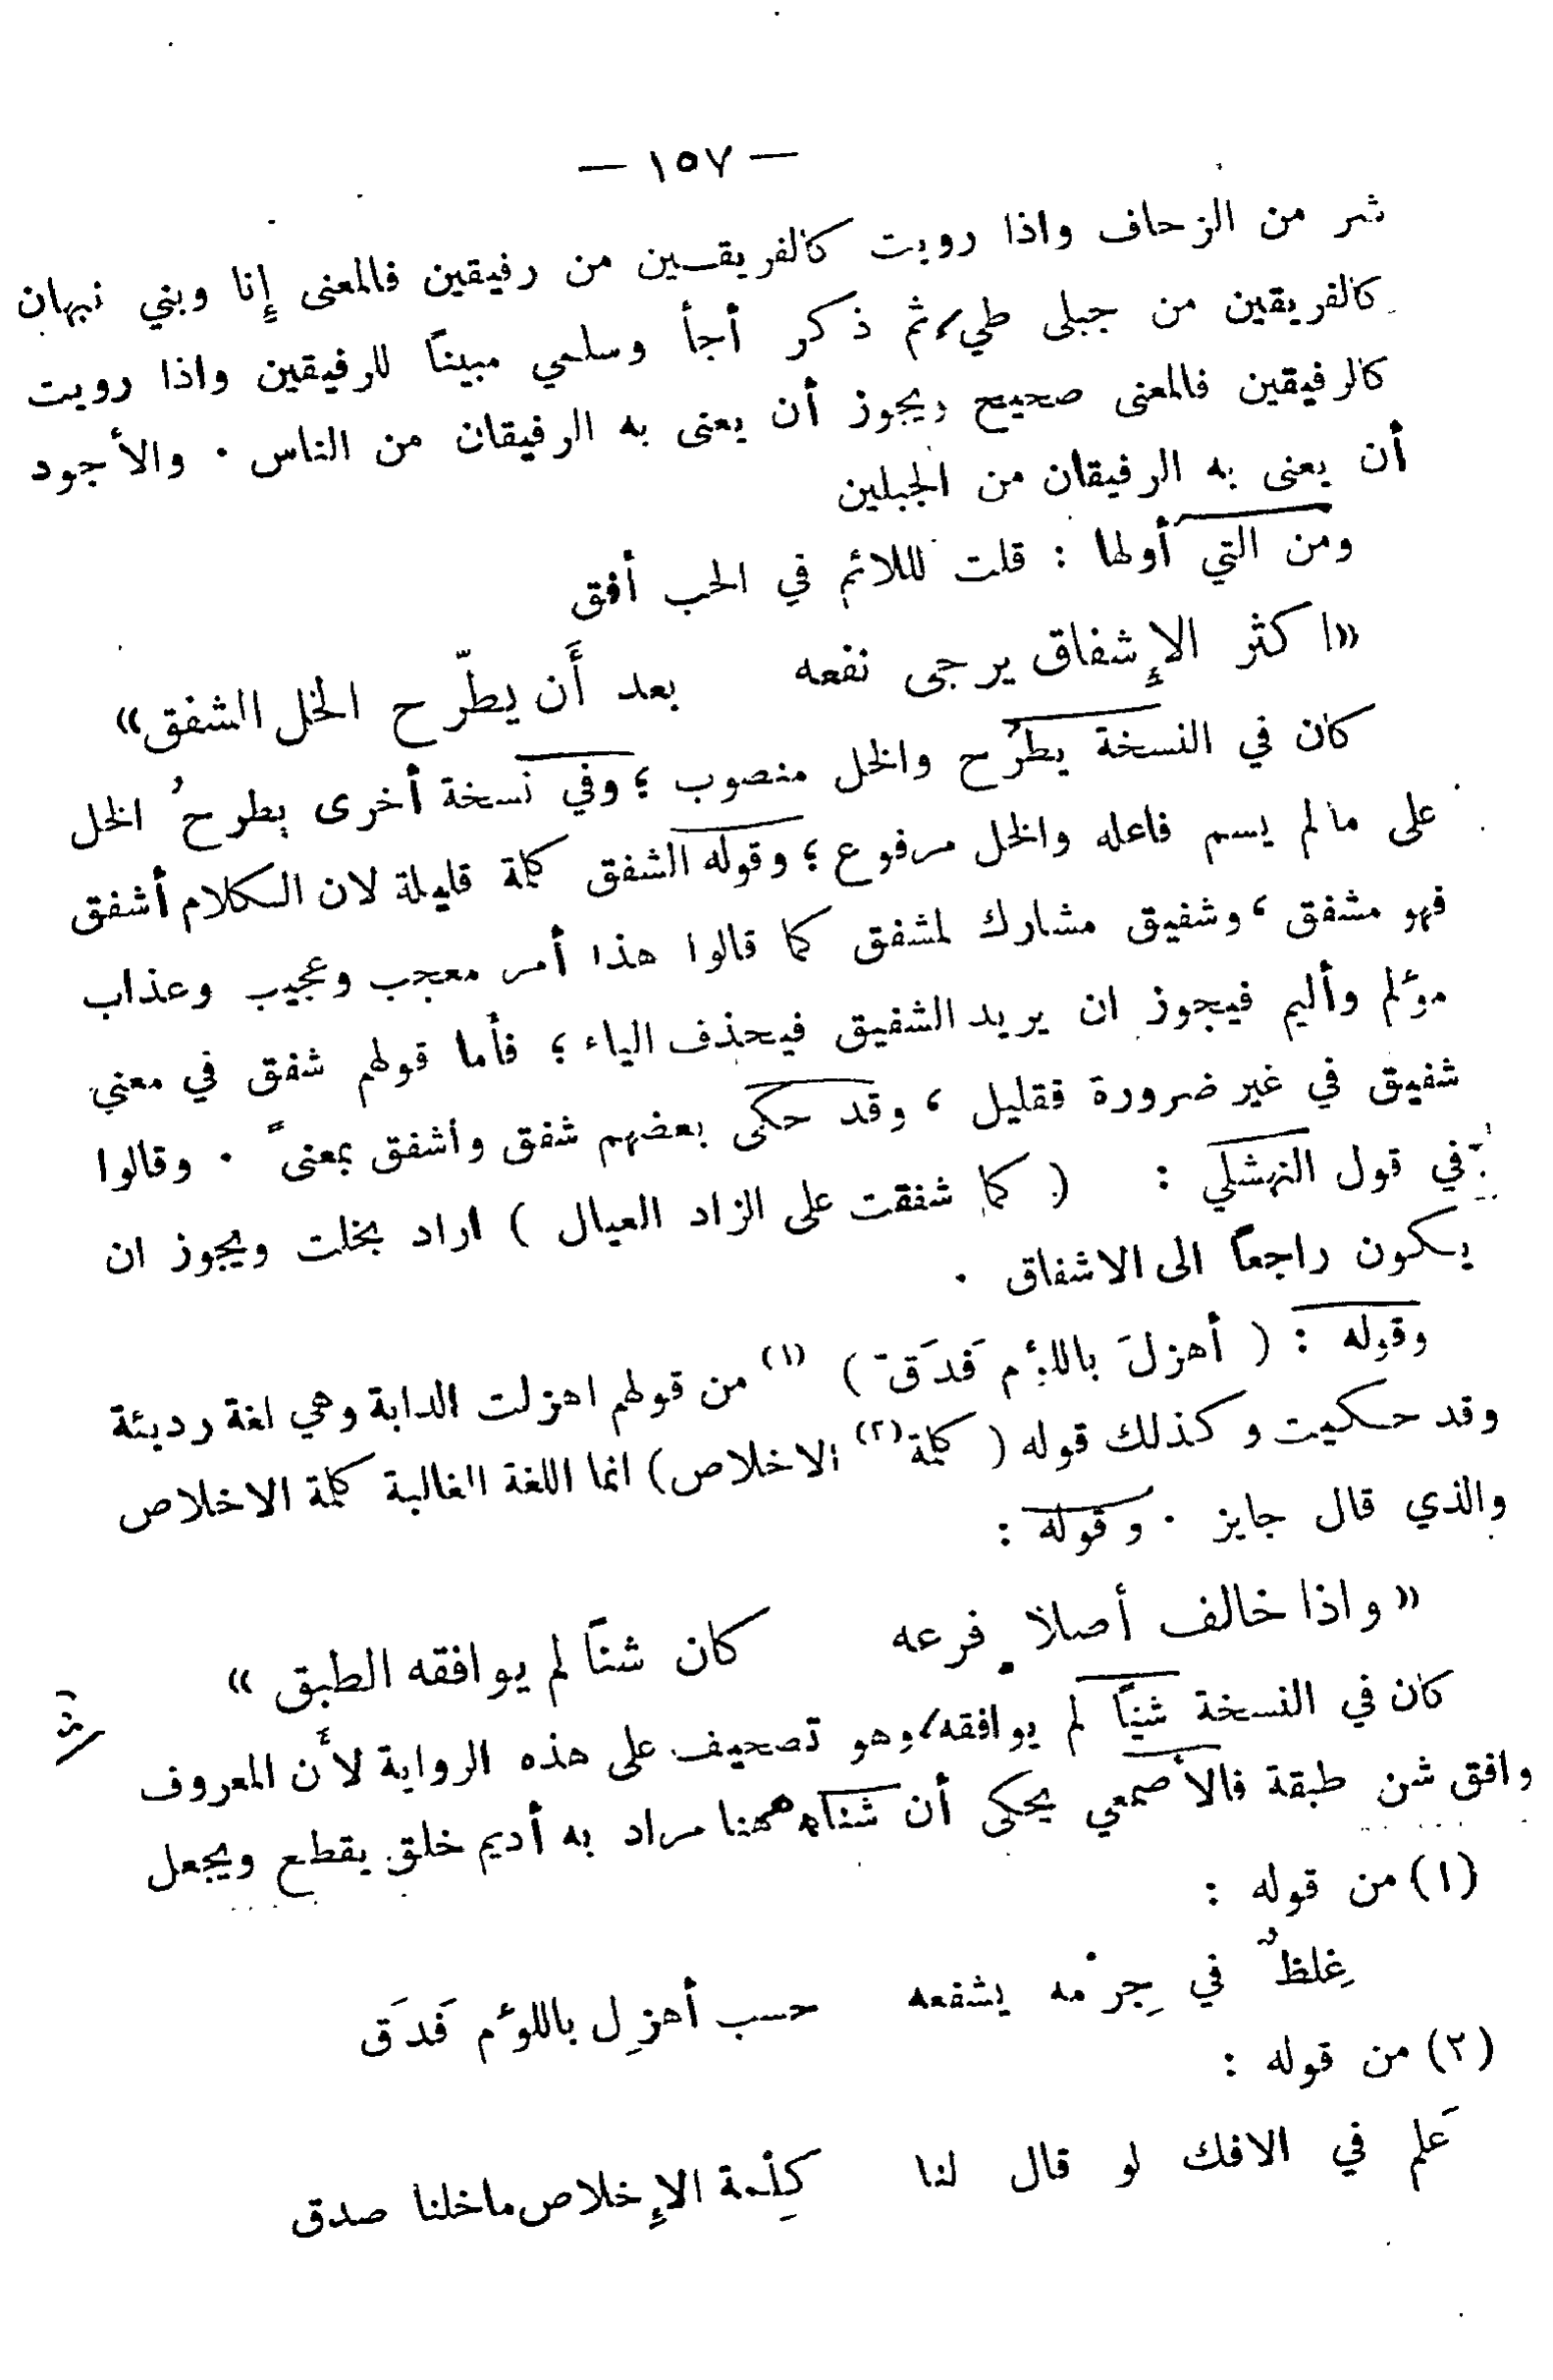 — ١٥٧ —
شر من الزحاف واذا رويت كالفريقين من رفيقين فالمعنى إنا وبني نبهان
كالفريقين من جبلى طيء ثم ذكر أجأ وسلمي مبيناً للرفيقين واذا رويت
كالرفيقين فالمعنى صحيح ويجوز أن يعنى به الرفيقان من الناس . والأجود
أن يعنى به الرفيقان من الجبلين
ومن التي أولها : قلت لللائم في الحب أفق
«اكثر الإشفاق يرجى نفعه بعد أَن يطّرح الخل الشفق»
كان في النسخة يطرُح والخل منصوب ؛ وفي نسخة أخرى يطرحُ الخل
على مالم يسم فاعله والخل مرفوع ؛ وقوله الشفق كلمة قليلة لان الكلام أشفق
فهو مشفق ، وشفيق مشارك لمشفق كما قالوا هذا أمر معجب وعجيب وعذاب
مؤلم وأليم فيجوز ان يريد الشفيق فيحذف الياء ؛ فأما قولهم شفق في معني
شفيق في غير ضرورة فقليل ، وقد حكى بعضهم شفق واشفق بمعنىً . وقالوا
في قول النهشلي : ( كما شفقت على الزاد العيال ) اراد بخلت ويجوز ان
يكون راجعاً الى الاشفاق .
وقوله : ( أهزلَ باللؤم فَدَقّ ) (١) من قولهم اهزلت الدابة وهي لغة رديئة
وقد حكيت وكذلك قوله ( كلمة (٢) الاخلاص ) انما اللغة الغالبة كلمة الاخلاص
والذي قال جايز . وقوله :
« واذا خالف أصلا فرعه كان شناً لم يوافقه الطبق »
كان في النسخة شنيًا لم يوافقه، وهو تصحيف على هذه الرواية لأن المعروف
وافق شن طبقة فالأصمعي يحكى أن شنا ههنا مراد به أديم خلق يقطع ويجعل
(١) من قوله :
غِلظٌ في جِرْمه يشفعه حسب أهزِل باللؤم فَدَق
(٢) من قوله :
عَلم في الافك لو قال لنا كِلْمة الإخلاص ماخلنا صدق